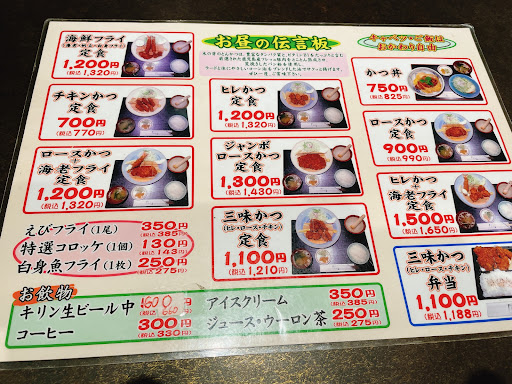 お昼の伝言板
キャベツ・ご飯は
おかわり自由
海鮮フライ
定食
1,200円
(税込 1,320円)
チキンかつ
定食
700円
(税込 770円)
ロースかつ
+
海老フライ
定食
1,200円
(税込 1,320円)
ヒレかつ
定食
1,200円
(税込 1,320円)
ジャンボ
ロースかつ
定食
1,300円
(税込 1,430円)
三味かつ
(ヒレ・ロース・チキン)
定食
1,100円
(税込 1,210円)
かつ丼
750円
(税込 825円)
ロースかつ
定食
900円
(税込 990円)
ヒレかつ
+
海老フライ
定食
1,500円
(税込 1,650円)
三味かつ
(ヒレ・ロース・チキン)
弁当
1,100円
(税込 1,188円)
えびフライ(1尾) 350円
(税込 385円)
特選コロッケ(1個) 130円
(税込 143円)
白身魚フライ(1枚) 250円
(税込 275円)
お飲物
キリン生ビール中 600円
(税込 660円)
コーヒー 300円
(税込 330円)
アイスクリーム 350円
(税込 385円)
ジュース・ウーロン茶 250円
(税込 275円)